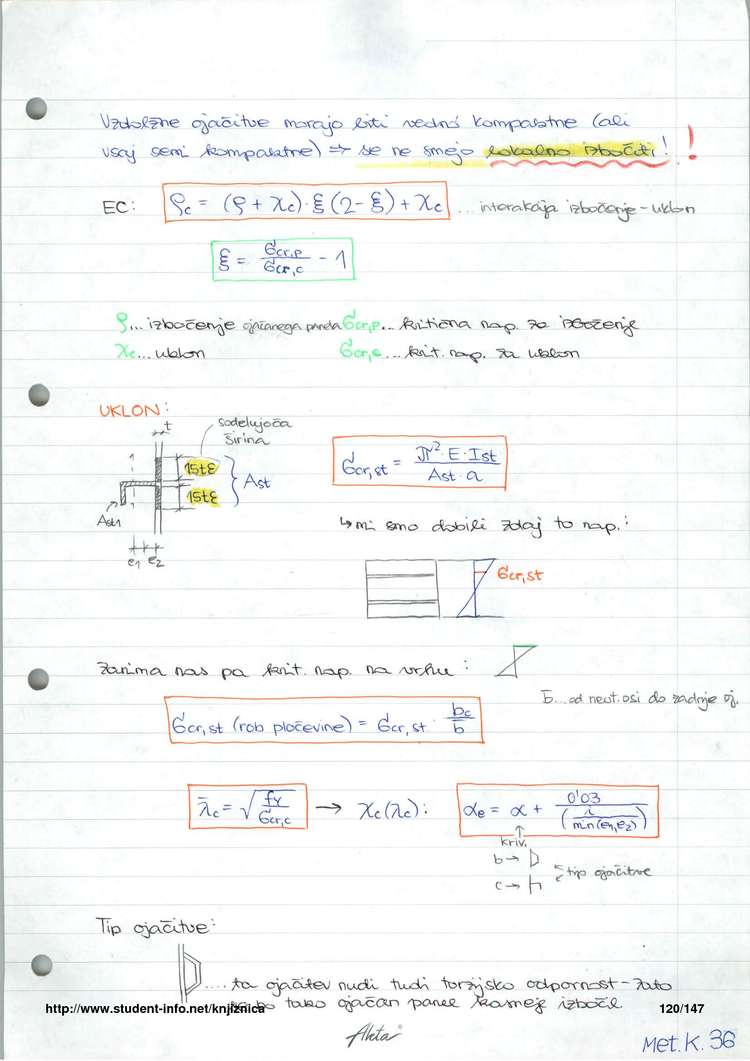 Vzdolžne ojačitve morajo biti vedno kompaktne (ali
vsaj semi kompaktne) ⇒ se ne smejo lokalno izbočiti! !
EC: ρc = (ρ + χc)·ξ(2-ξ) + χc ... interakcija izbočenje - uklon
ξ = σcr,p / σcr,c - 1
ρ... izbočenje ojačanega panela σcr,p... kritična nap. za izbočenje
χc... uklon σcr,c... krit. nap. za uklon
UKLON:
t
sodelujoča
širina
15tε
15tε
Ast
Ast1
e1 e2
σcr,st = π²·E·Ist / Ast·a
↳ mi smo dobili zdaj to nap.:
σcr,st
Zanima nas pa krit. nap. na vrhu:
b̄... od nevt. osi do zadnje oj.
σcr,st (rob pločevine) = σcr,st · bc / b̄
λ̄c = √(fy / σcr,c) → χc(λc): αe = α + 0'03 / (i / min(e1,e2))
↑
kriv.
b →
c →
tip ojačitve
Tip ojačitve:
.... ta ojačitev nudi tudi torzijsko odpornost - zato
se bo tako ojačan panel kasneje izbočil
http://www.student-info.net/knjiznica 120/147
Aleta
Met. K. 36